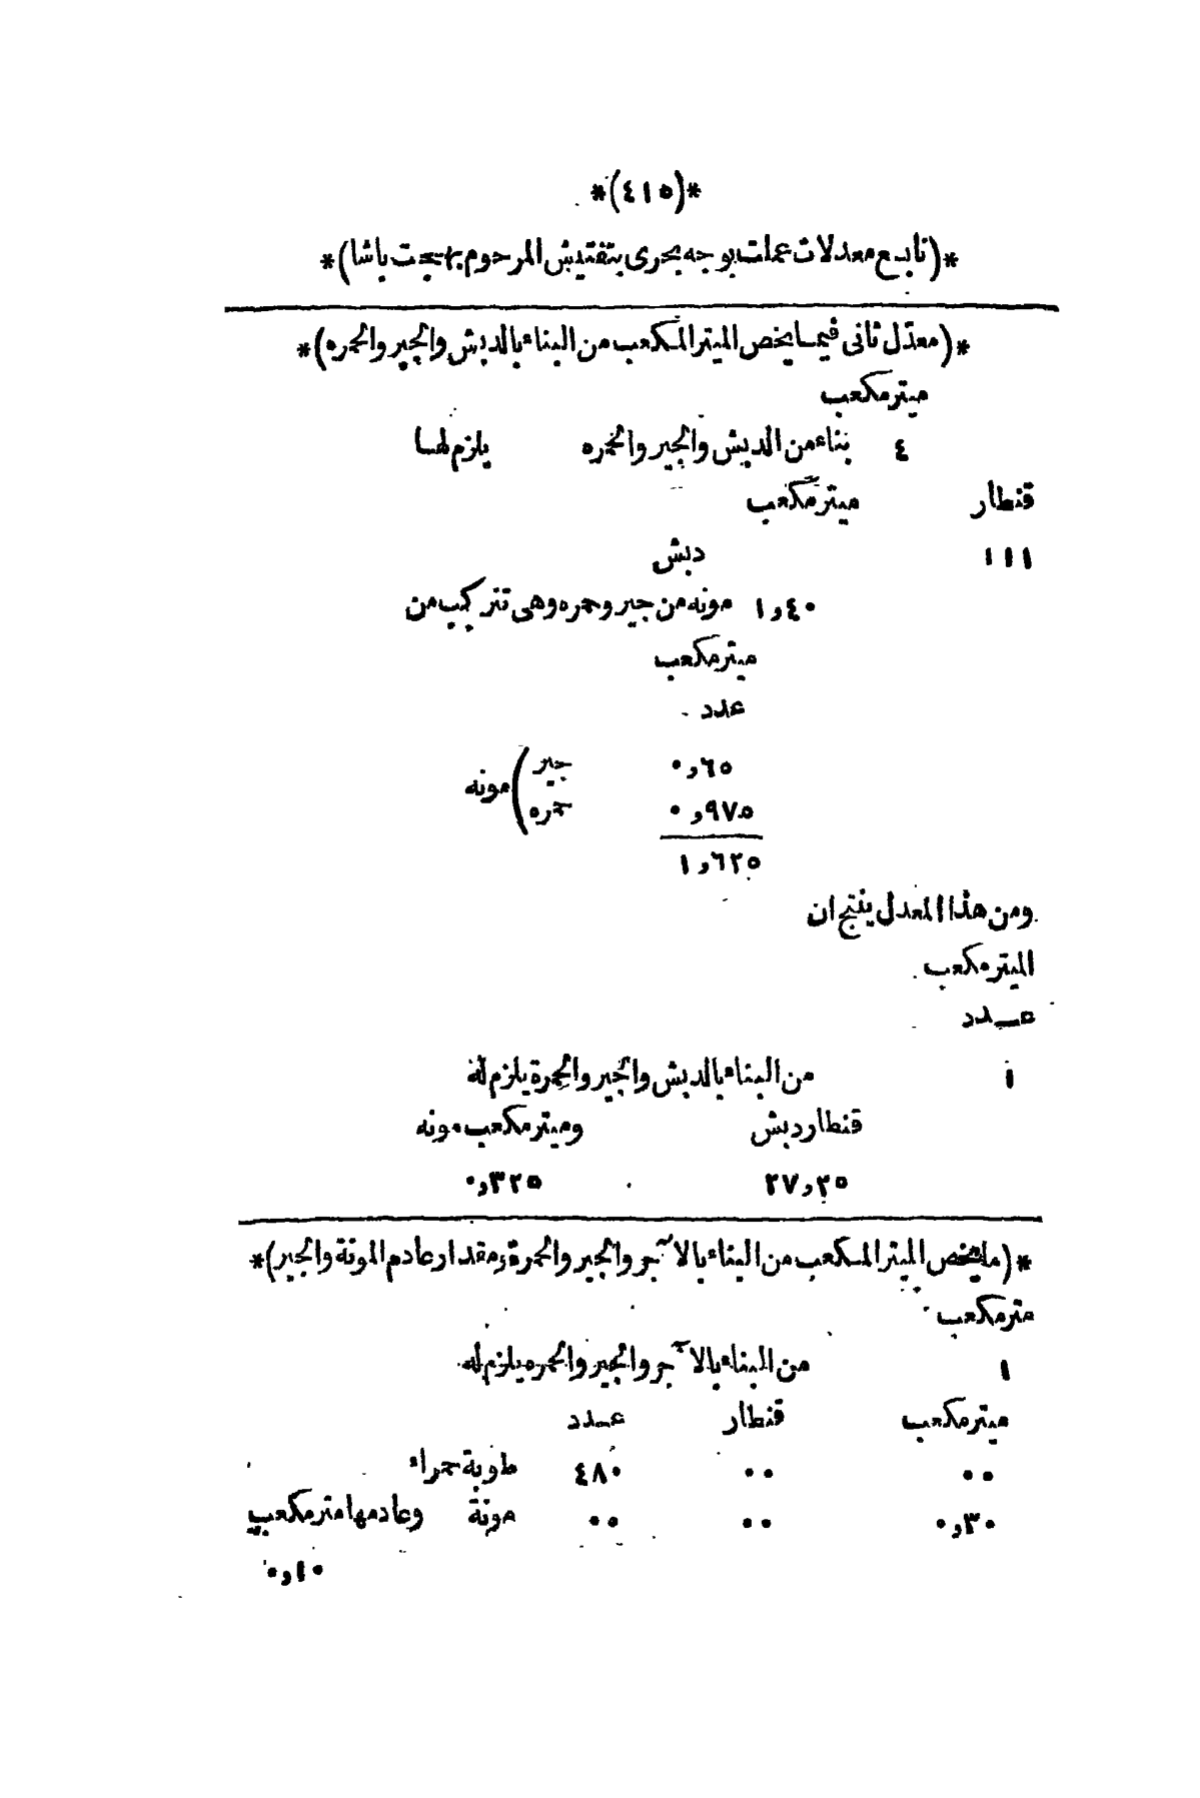 *(٤١٥)*
*(تابع معدلات عملت بوجه بحرى بتفتيش المرحوم بهجت باشا)*
*(معدّل ثانى فيما يخص الميتر المكعب من البناء بالدبش والجير والحمره)*
ميتر مكعب
٤ بناء من الدبش والجير والحمره يلزم لها
قنطار ميتر مكعب
١١١ دبش
١٫٤٠ مونه من جير وحمره وهى تتركب من
ميتر مكعب
عدد
٠٫٦٥ جير
٠٫٩٧٥ حمره ) مونه
١٫٦٢٥
ومن هذا المعدل ينتج ان
الميتر مكعب
عدد
١ من البناء بالدبش والجير والحمرة يلزم له
قنطار دبش وميتر مكعب مونه
٢٧٫٢٥ ٠٫٣٢٥
*(ما يخص الميتر المكعب من البناء بالآجر والجير والحمرة ومقدار عادم المونة والجير)*
متر مكعب
١ من البناء بالآجر والجير والحمره يلزم له
ميتر مكعب قنطار عدد
٠٠ ٠٠ ٤٨٠ طوبة حمراء
٠٫٣٠ ٠٠ ٠٠ مونة وعادمها متر مكعب
٠٫١٠